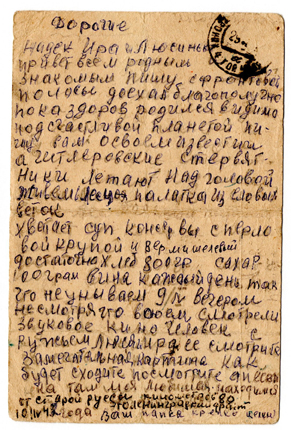 Дорогие
Ира и Люсинька
привет всем родным
знакомым пишу с фронтовой
полосы доехал благополучно
пока здоров родился видимо
под счастливой планетой пи-
шу вам обо всем известиш
а гитлеровские стервят-
ники летают над головой
живем палатка из еловых
веток
хватает суп консервы с перло
вой крупой и вермишелей
достаточно хлеб 800гр сахар
100грам вина каждый день так
что не унываем 9/IV вечером
несмотря что воюем смотрели
звуковое кино Человек с
ружьем Люся Ира ее смотрите
Замечательная картина как
будет сходите посмотрите
на там мся Люсинька находимся
от Старой руссы
Ленинградский фронт
10/IV 43 года Ваш папка крепко целую